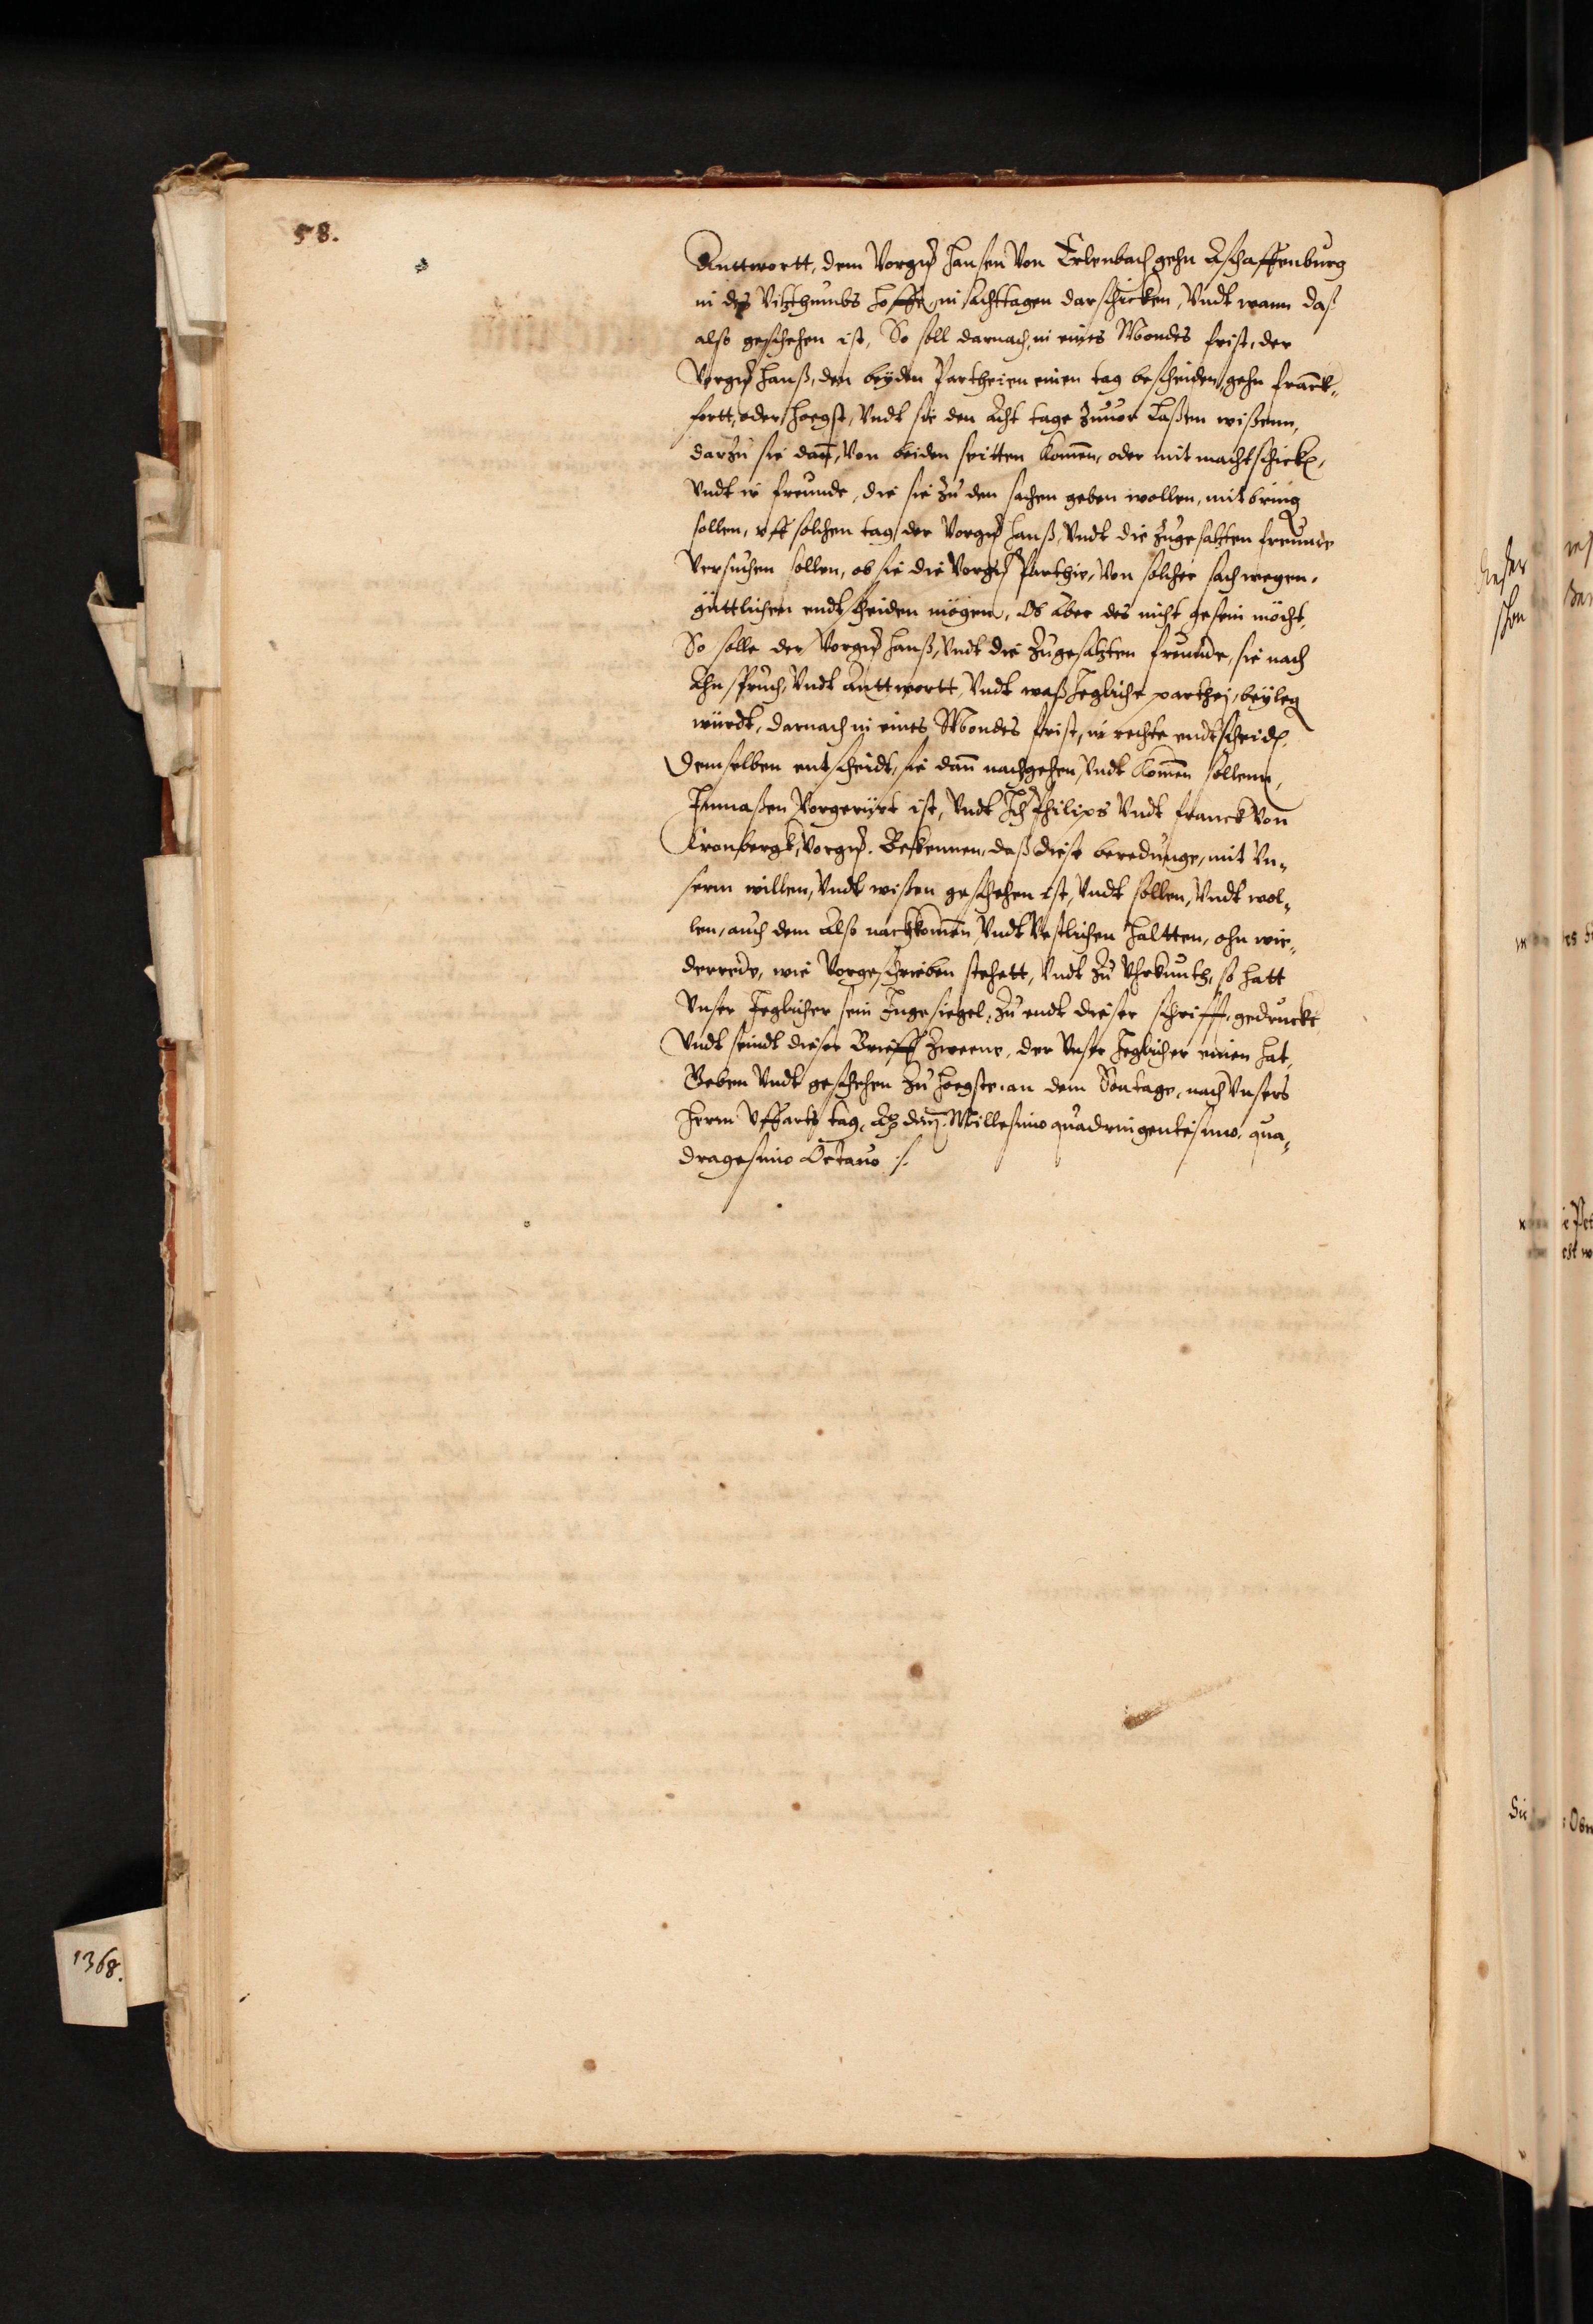 58.
Anttwortt, dem Vorgñ Hansen Von Erlenbach gehn Aschaffenburg
in des Vitzthumbs Hoffe, in achttagen darschicken, Vndt wann daß
also geschehen ist, So soll darnach, in eines Mondes frist, der
Vorgñ Hanß, den beÿden Partheien einen tag bescheiden, gehn franck-
fortt, oder Hoegst, Vndt sie den Acht tage zuuor Laßen wißenn,
darzu sie dañ, Von beiden seitten Komen, oder mit macht schicken,
Vndt ir freunde, die sie zu den sachen geben wollen, mit bring
sollen, vff solchen tag, der Vorgñ Hanß, Vndt die zugesatzten freunde
Versuchen sollen, ob sie die Vorgñ Parthie, Von solcher sach wegen,
güttlichen endtscheiden mögen, Ob Aber des nicht gesein möcht,
So solle der Vorgñ Hanß, Vndt die zugesatzten freunde, sie nach
Ahnspruch, Vndt Anttwortt, Vndt waß Jegliche parthej, beÿleg
würdt, darnach in eines Mondes frist, in rechte endtscheiden,
Demselben entscheidt, sie dañ nachgehen, Vndt Komen sollenn,
Inmaßen Vorgerürt ist, Vndt Ich Philips Vndt franck Von
Cronbergk, Vorgñ. Bekennen, daß diese beredunge, mit Vn-
serm willen, Vndt wißen geschehen ist, Vndt sollen, Vndt wol-
len, auch dem Also nachkomen, Vndt Vestlichen haltten, ohn wie-
derrede, wie Vorgeschrieben stehett, Vndt zu Vhrkunth, so hatt
Vnser Jeglicher sein Ingesiegel, zu endt dieser schrifft, gedruckt
Vndt seindt dieser Brieff zweene, der Vnser Jeglicher einen hat,
Geben Vndt geschehen zu Hoegste, an dem Sontage, nach Vnsers
Herrn Vffarts tag, Ao dñj. Millesimo quadringentesimo, qua-
dragesimo Octauo ./.
1368.